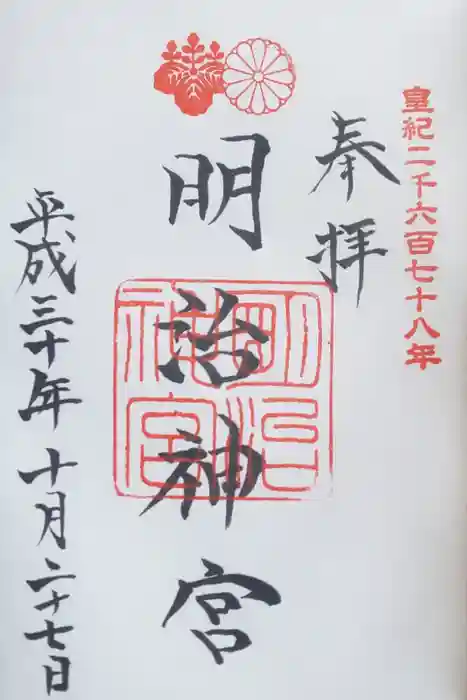 皇紀二千六百七十八年
奉拝
明治神宮
明治神宮
平成三十年十月二十七日